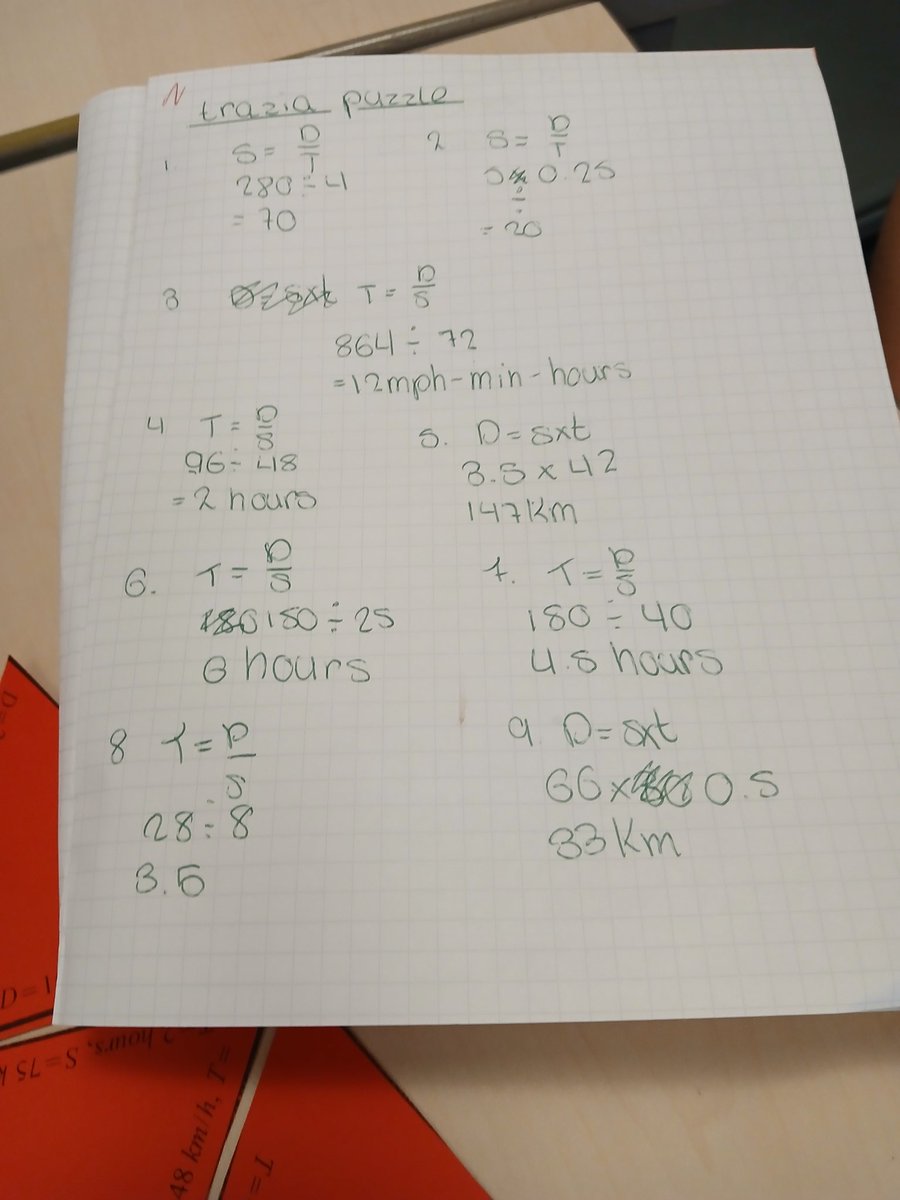 N
trazia puzzle
1 S = D/T
280 ÷ 4
= 70
2 S = D/T
5 ÷ 0.25
= 20
3 T = D/S
864 ÷ 72
=12mph-min-hours
4 T = D/S
96 ÷ 48
= 2 hours
5. D = sxt
3.5 x 42
147Km
6. T = D/S
150 ÷ 25
6 hours
7. T = D/S
180 ÷ 40
4.5 hours
8 T = D/S
28 ÷ 8
3.5
9. D = sxt
66 x 0.5
33Km
D = 1
2 hours, S = 75 k
48 km/h, T =
T =